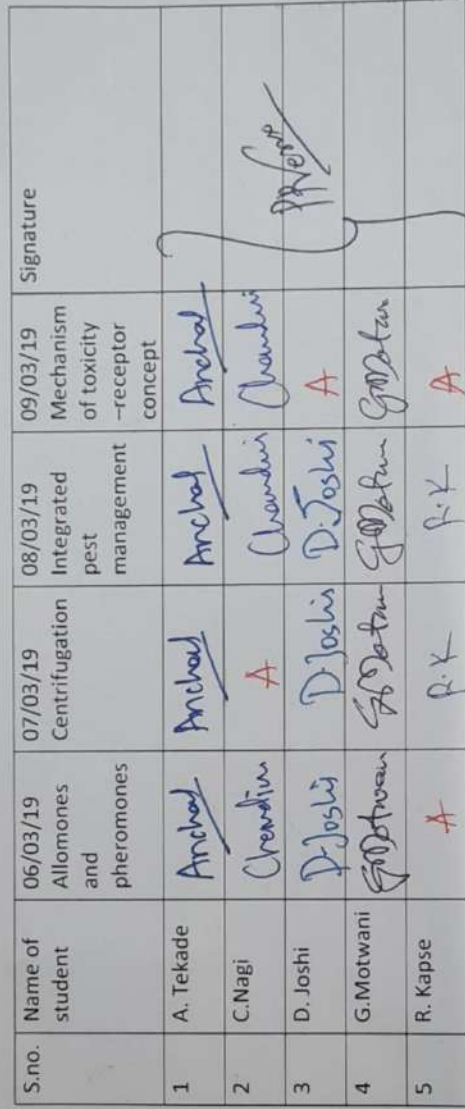 S.no. Name of student 06/03/19 Allomones and pheromones 07/03/19 Centrifugation 08/03/19 Integrated pest management 09/03/19 Mechanism of toxicity –receptor concept Signature
1 A. Tekade Anchal Anchal Anchal Anchal
2 C.Nagi Chandini A Chandini Chandini
3 D. Joshi D.Joshi D.Joshi D.Joshi A
4 G.Motwani GMotwani GMotwani GMotwani GMotwani
5 R. Kapse A R.K R.K A